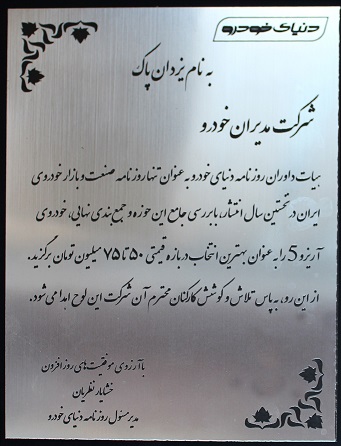 دنیای خودرو
به نام یزدان پاک
شرکت مدیران خودرو
هیات داوران روزنامه دنیای خودرو به عنوان تنها روزنامه صنعت و بازار خودروی
ایران در نخستین سال انتشار، با بررسی جامع این حوزه و جمع بندی نهایی، خودروی
آریزو 5 را به عنوان بهترین انتخاب در بازه قیمتی ۵۰ تا ۷۵ میلیون تومان برگزید.
از این رو، به پاس تلاش و کوشش کارکنان محترم آن شرکت این لوح اهدا می شود.
با آرزوی موفقیت های روز افزون
خشایار نظریان
مدیر مسئول روزنامه دنیای خودرو